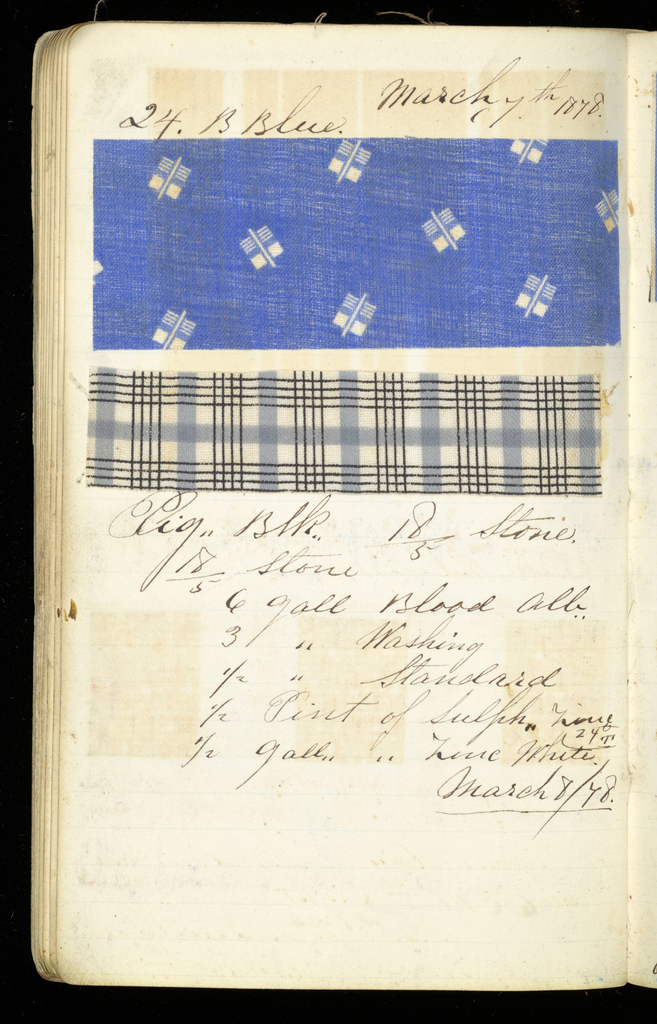 March 7th 1878.
24. B Blue.
Pig,, Blk,, 18/5 Stone.
18/5 Stone
6 Gall Blood Alb,,
3 ,, Washing
1/2 ,, Standard
1/2 Pint of Sulph,, Zinc
24° T
1/2 Gall,, ,, Zinc White.
March 8/78.